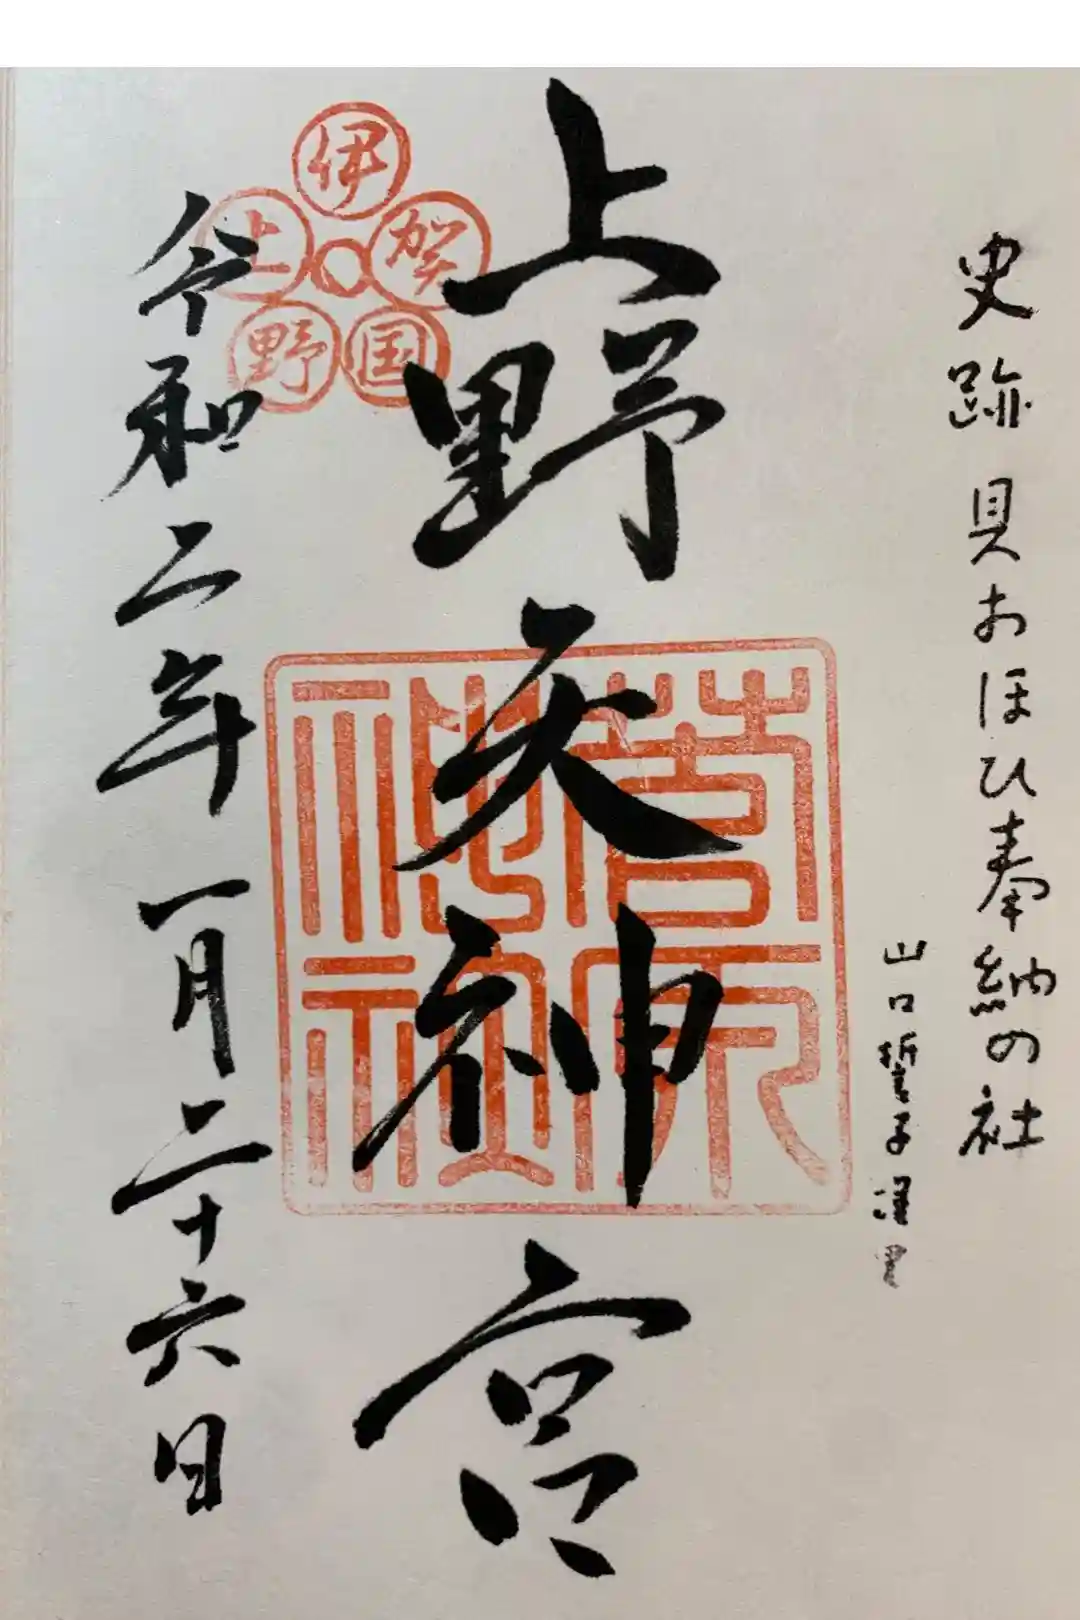 史跡 貝おほひ奉納の社
山口誓子
上野天神宮
伊賀国野上
菅原神社
令和二年一月二十六日